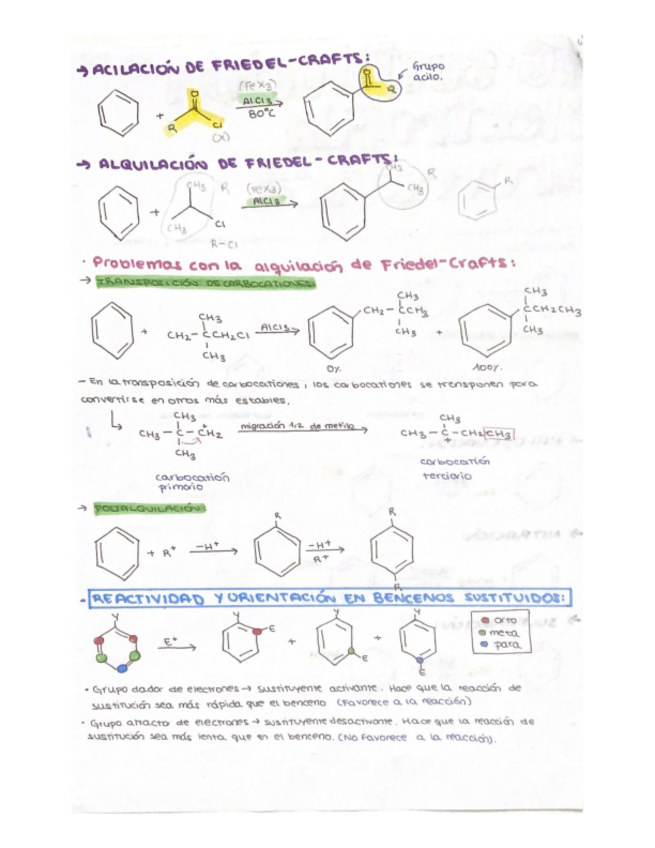 → ACILACIÓN DE FRIEDEL-CRAFTS:
Grupo
acilo.
O
(FeX3)
AlCl3
80°C
+
R
Cl
(X)
O
R
→ ALQUILACIÓN DE FRIEDEL-CRAFTS:
CH3
R
CH3
+
Cl
R-Cl
(FeX3)
AlCl3
CH3
CH3
R
R
· Problemas con la alquilación de Friedel-Crafts:
→ TRANSPOSICIÓN DE CARBOCATIONES:
+
CH3
CH2-CCH2Cl
CH3
AlCl3
CH3
CH2-CCH3
CH3
0%
+
CH3
CCH2CH3
CH3
100%
- En la transposición de carbocationes, los carbocationes se transponen para
convertirse en otros más estables.
CH3
CH3-C-CH2
+
CH3
migración 1,2 de metilo
CH3
CH3-C-CH2CH3
+
carbocatión
primario
carbocatión
terciario
→ POLIALQUILACIÓN:
+ R+
-H+
R
-H+
R+
R
R
- REACTIVIDAD Y ORIENTACIÓN EN BENCENOS SUSTITUIDOS:
Y
E+
Y
E
+
Y
E
+
Y
E
orto
meta
para
· Grupo dador de electrones → sustituyente activante. Hace que la reacción de
sustitución sea más rápida que el benceno (Favorece a la reacción)
· Grupo atracto de electrones → sustituyente desactivante. Hace que la reacción de
sustitución sea más lenta que en el benceno. (No favorece a la reacción).